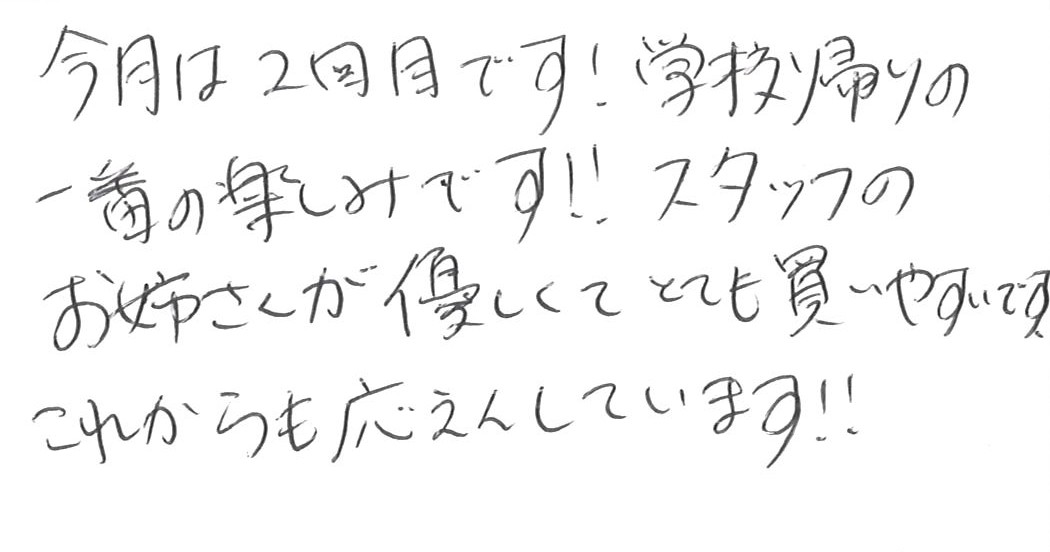 今月は2回目です!学校帰りの
一番の楽しみです!!スタッフの
お姉さんが優しくてとても買いやすいです
これからも応えんしています!!